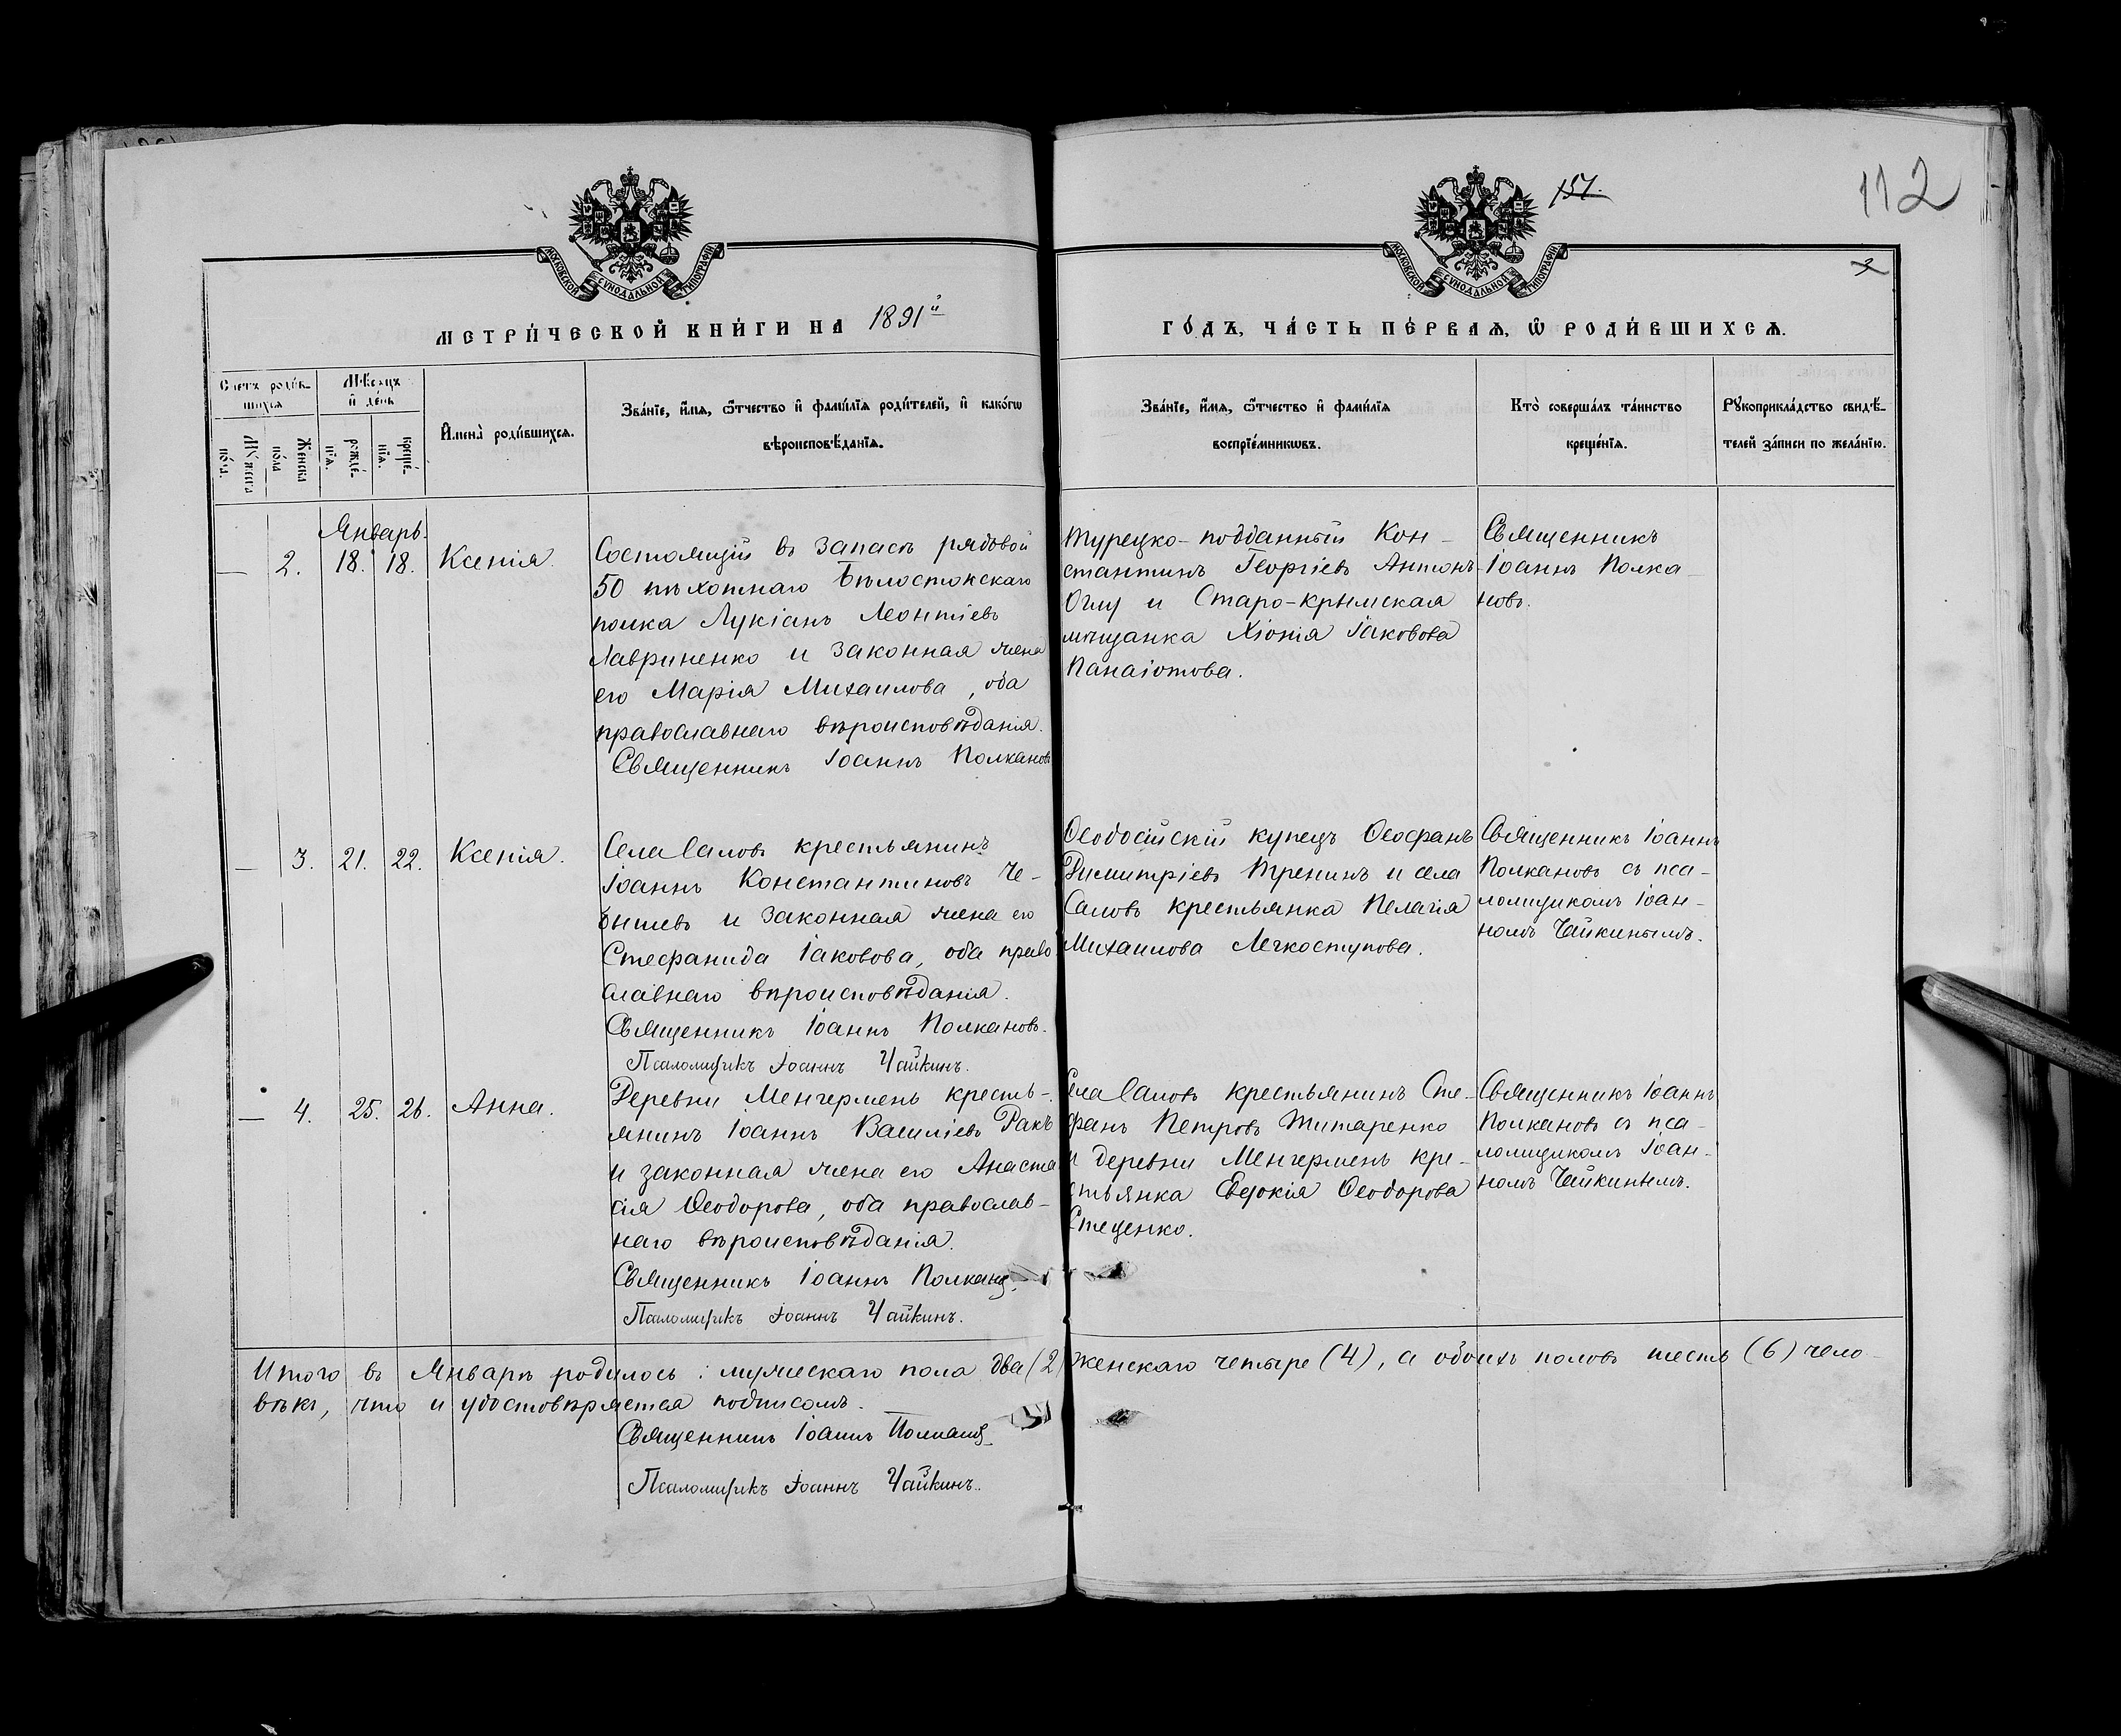 151.
112
3
МОСКОВСКОЙ СѴНОДАЛЬНОЙ ТИПОГРАФІИ
МОСКОВСКОЙ СѴНОДАЛЬНОЙ ТИПОГРАФІИ
МЕТРИ́ЧЕСКОЙ КНИ́ГИ НА 1891й
ГО́ДЪ, ЧА́СТЬ ПЕ́РВАѦ, Ѽ РОДИ́ВШИХСѦ.
Счетъ роди́в-
шихся
Мѣсяцъ
и҆ де́нь
Мꙋ́жеска
по́ла.
Же́нска
по́ла
рожде́-
нїя.
креще́-
нїя.
И҆мена̀ роди́вшихся.
Зва́нїе, и҆́мя, ѻ҆́тчество и҆ фами́лїя роди́телей, и҆ како́гѡ
вѣроисповѣ́данїя.
Зва́нїе, и҆́мя, ѻ҆́тчество и҆ фами́лїя
воспрїе́мникѡвъ.
Кто̀ соверша́лъ та́инство
креще́нїя.
Рꙋкоприкла́дство свидѣ́-
телей за́писи по жела́нїю.
Январь.
— 2. 18. 18. Ксенія.
Состоящій въ запасѣ рядовой
50 пѣхотнаго Бѣлостокскаго
полка Лукіанъ Леонтіевъ
Лавриненко и законная жена
его Марія Михаилова, оба
православнаго вѣроисповѣданія.
Священникъ Іоаннъ Полкановъ
Турецко-подданный Кон-
стантинъ Георгіевъ Антонъ-
Оглу и Старо-крымская
мѣщанка Хіонія Іаковова
Панаіотова.
Священникъ
Іоаннъ Полка-
новъ.
— 3. 21. 22. Ксенія.
Села Саловъ крестьянинъ
Іоаннъ Константиновъ Че-
бышевъ и законная жена его
Стефанида Іаковова, оба право
славнаго вѣроисповѣданія.
Священникъ Іоаннъ Полкановъ.
Псаломщикъ Іоаннъ Чайкинъ.
Ѳеодосійскій купецъ Ѳеофанъ
Димитріевъ Тренинъ и села
Саловъ крестьянка Пелагія
Михаилова Легкоступова.
Священникъ Іоаннъ
Полкановъ съ пса-
ломщикомъ Іоан-
номъ Чайкинымъ.
— 4. 25. 26. Анна.
Деревни Менгерменъ кресть-
янинъ Іоаннъ Василіевъ Ракъ
и законная жена его Анаста
сія Ѳеодорова, оба православ-
наго вѣроисповѣданія.
Священникъ Іоаннъ Полкановъ.
Псаломщикъ Іоаннъ Чайкинъ.
Села Саловъ крестьянинъ Сте-
фанъ Петровъ Титаренко
и деревни Менгерменъ кре-
стьянка Евдокія Ѳеодорова
Стеценко.
Священникъ Іоаннъ
Полкановъ съ пса-
ломщикомъ Іоан-
номъ Чайкинымъ.
Итого въ Январѣ родилось: мужескаго пола два (2) женскаго четыре (4), а обоихъ половъ шесть (6) чело-
вѣкъ, что и удостовѣряется подписомъ.
Священникъ Іоаннъ Полкановъ
Псаломщикъ Іоаннъ Чайкинъ.